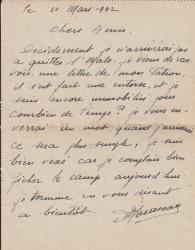 le 11 Mars 1942
Chers Amis
Décidement je n'arriverai pas
a quitter l'Malo je viens de rece-
voir une lettre de mon Patron,
il s'est fait une entorse, et je
suis encore immobilisé pour
combien de temps ? je vous en-
verrai un mot quand j'arriverai
ce sera plus simple, je suis
bien vexé car je comptais bien
ficher le camp aujourd'hui
je termine en vous disant
a bientôt.